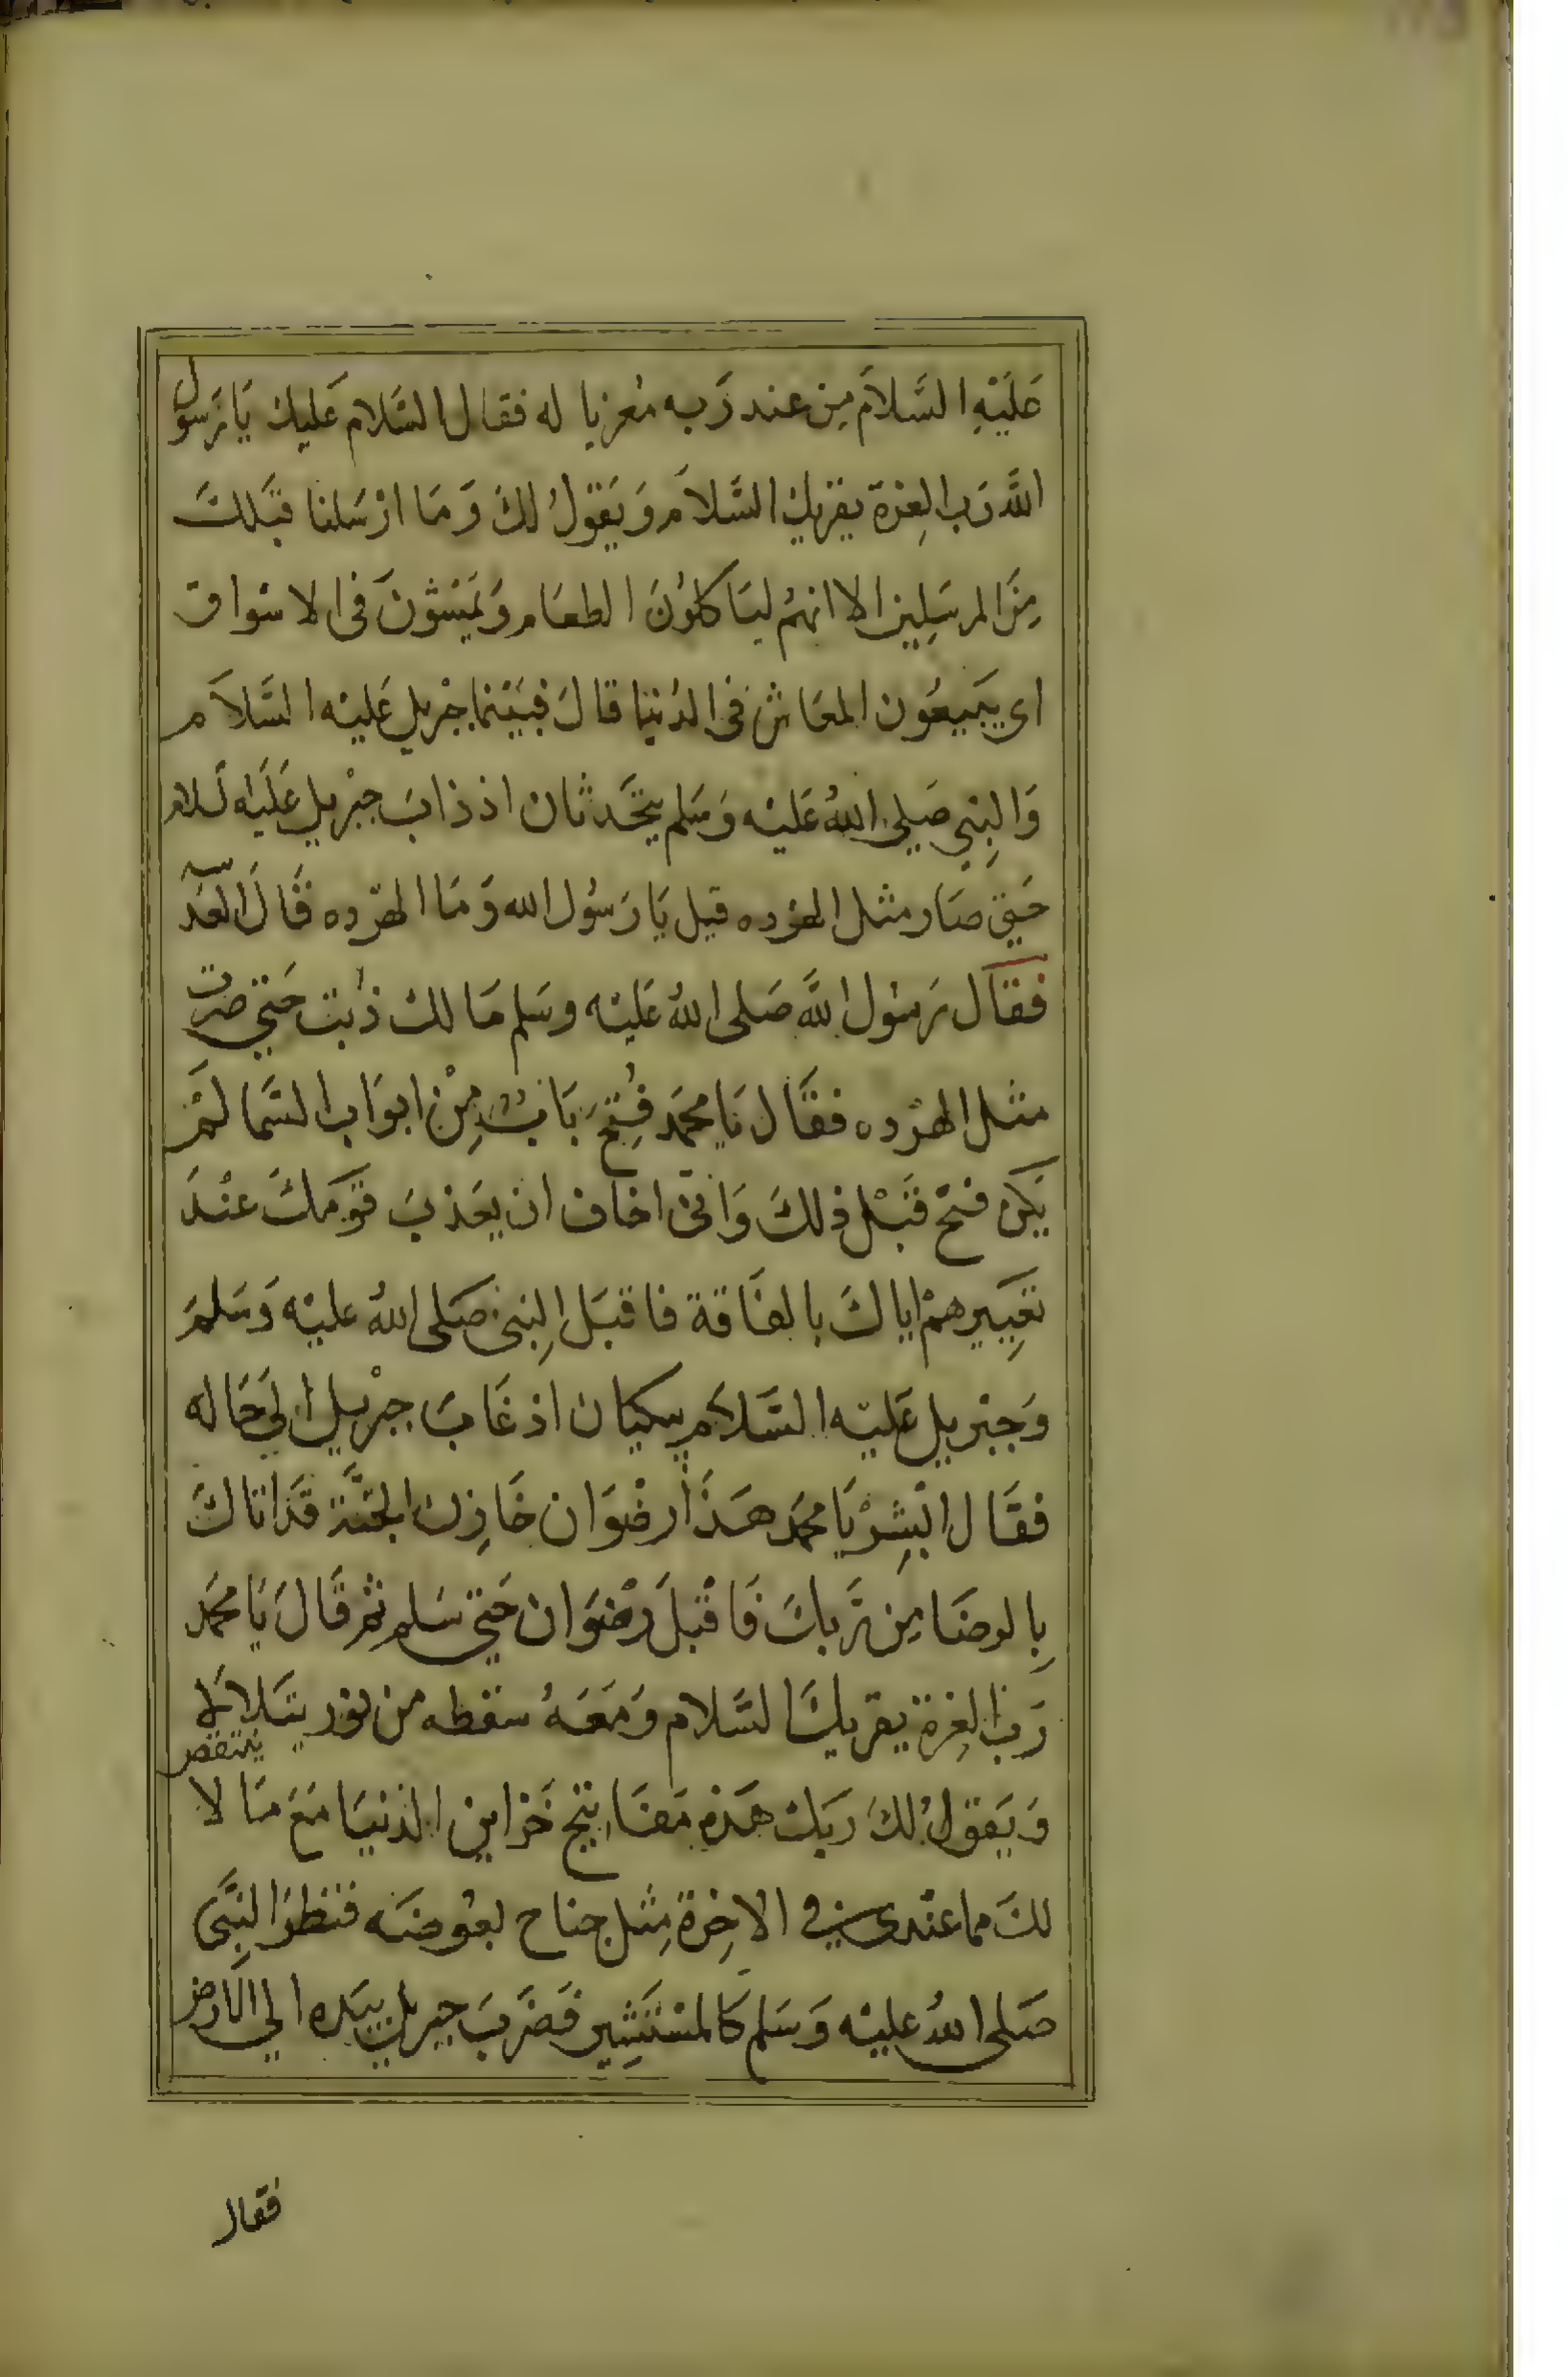 عَلَيْهِ السَّلاَم مِن عند رَبه مُعزيا له فقال السَّلام عَليك يَا رَسول
اللَّه رَب العِزة يقريك السَّلاَم وَيَقولُ لكَ وَمَا ارْسَلنا قبَلكَ
مِنَ المرسَلِين الا انهُم ليَا كلوُنَ الطعَام وَيَمشوُنَ فى الاسَواق
اى يَبيعُون المعَاش فى الدُنيا قالَ فبَيْنما جبْريل عَليْه السَّلاَم
وَالنِبي صَلى اللهُ عَليْه وَسَلم يتحَدثان اذ ذابَ جبْريل عَليَه لسلام
حَتي صَار مثل الهرده قيل يَا رَسُول الله وَمَا الهرده قَالَ العَدَسه
فقاَل رَسُول اللَّه صَلى اللهُ عَليْه وسَلم مَا لك ذُبت حَتي صرت
مثل الهرْده فقَال يَا محمَد فُتِحَ بَابُ مِنْ ابوَاب السَّمَا لَم
يَكن فتح قَبْل ذلكَ وَاني اخاف ان يعَذبَ قوَمكَ عنْدَ
تعِييرهمْ اياكَ بالفَاقة فاقبَل النِبي صَلى اللهُ عليْه وَسَلمَ
وَجبْريل عَليْه السَّلاَم يبكيَان اذ عَابَ جبْريل الي حَاله
فقَال ابْشِرْ يَا محمَد هَذَا رضْوَان خَازِن الجنَّة قدَاتاكَ
بِالرضَا مِن رَبكَ فَاقْبلَ رضْوَان حَتي سَلم ثم قَالَ يَا محمَد
رَب العِزة يقريكَ السَّلام وَمَعَهُ سفطه من نور يتَلالا
وَيَقولُ لكَ رَبكَ هَذه مفَاتيح خَزاين الدنيَا مَع مَا لا ينتقص
لكَ مما عنْدي في الاخِرة مِثل جناح بعُوضَه فنظرَ النِبَّى
صَلى اللهُ عليْه وَسَلم كَالمسْتَشِير فضَرَبَ جبريل بيَده الي الارض
فقال